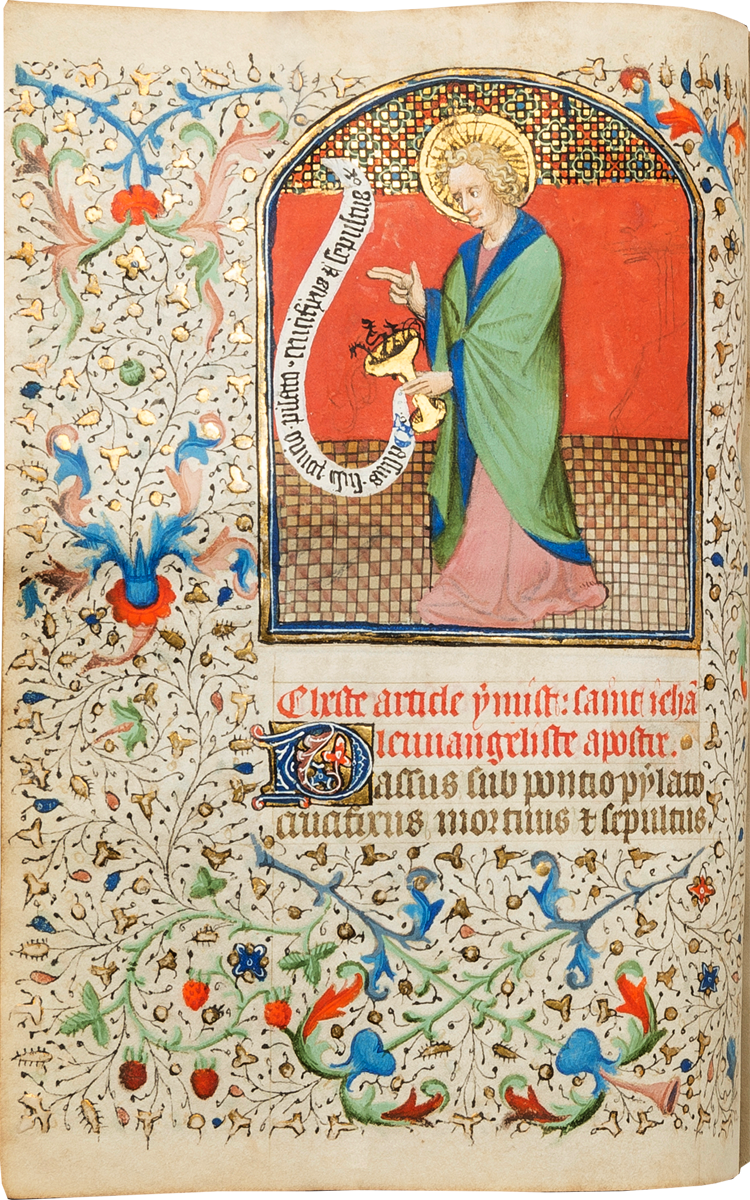 Passus · sub poncio pilato · crucifixus ⁊ sepultus ⁊
Cheste article ẏ mist : saint iehã
leuuangeliste apostre.
Passus sub pontio pẏlato
crucifixus mortuus ⁊ sepultus.